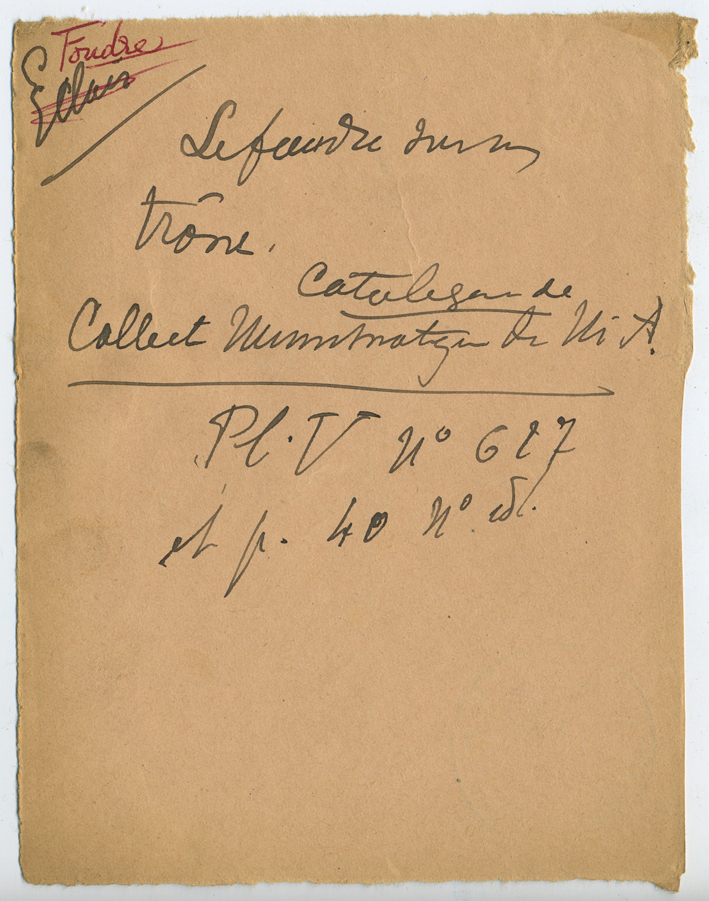 Foudre
Eclair
Le foudre sur un
trône.
Catalogue de
Collect Numismatique de M. A.
Pl. V N° 627
et p. 40 N° id.